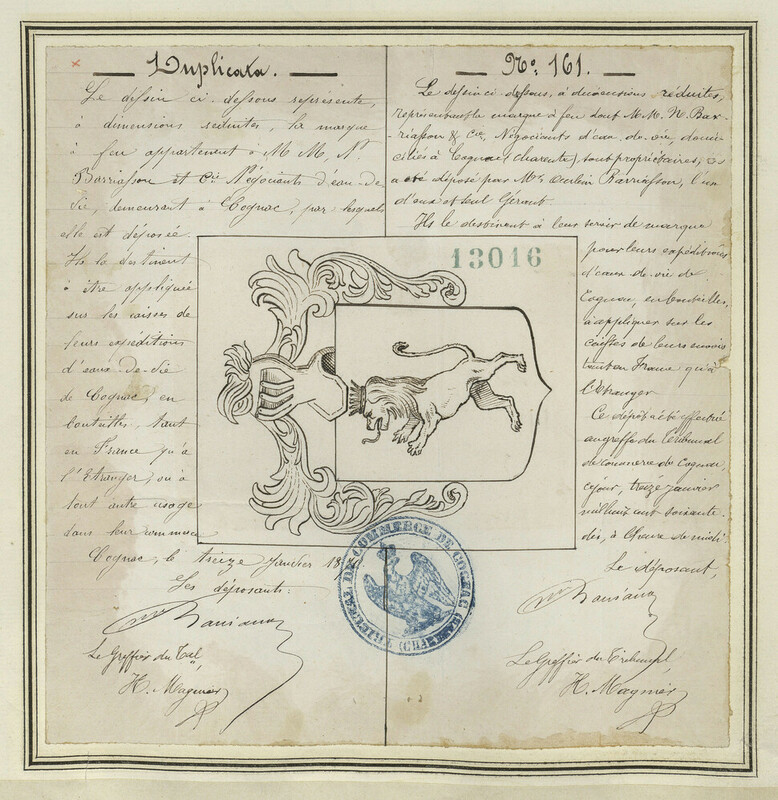 Duplicata.
Le dessin ci dessous représente,
à dimensions réduites, la marque
à feu appartenant à M M, N.
Barriasson et Cie Négociants d'eau-de-
vie, demeurant à Cognac, par lesquels
elle est déposée.
Ils la destinent
à être appliquée
sur les caisses de
leurs expéditions
d'eaux-de-vie
de Cognac, en
bouteilles, tant
en France qu'à
l'Etranger, ou à
tout autre usage
dans leur commerce
Cognac, le treize Janvier
Les déposants:
Le Greffier du Tal,
H. Magnier
No. 161.
Le dessin ci dessous, à dimensions réduites,
représente la marque à feu dont M.M. N. Bar-
riasson & Cie, Négociants d'eau-de-vie, domi-
ciliés à Cognac (Charente) sont propriétaires,
a été déposé par Mr. Barriasson, l'un
d'eux et seul Gérant.
Ils le destinent à leur servir de marque
pour leurs expéditions
d'eaux-de-vie de
Cognac, en bouteilles,
à appliquer sur les
caisses de leurs envois
tant en France qu'à
l'Etranger
Ce dépôt a été effectué
au greffe du Tribunal
de commerce de Cognac,
ce jour, treize janvier
mil huit cent soixante
dix, à l'heure de midi
Le déposant,
Le Greffier du Tribunal
H. Magnier
13016
TRIBUNAL DE COMMERCE DE COGNAC (CHARENTE)